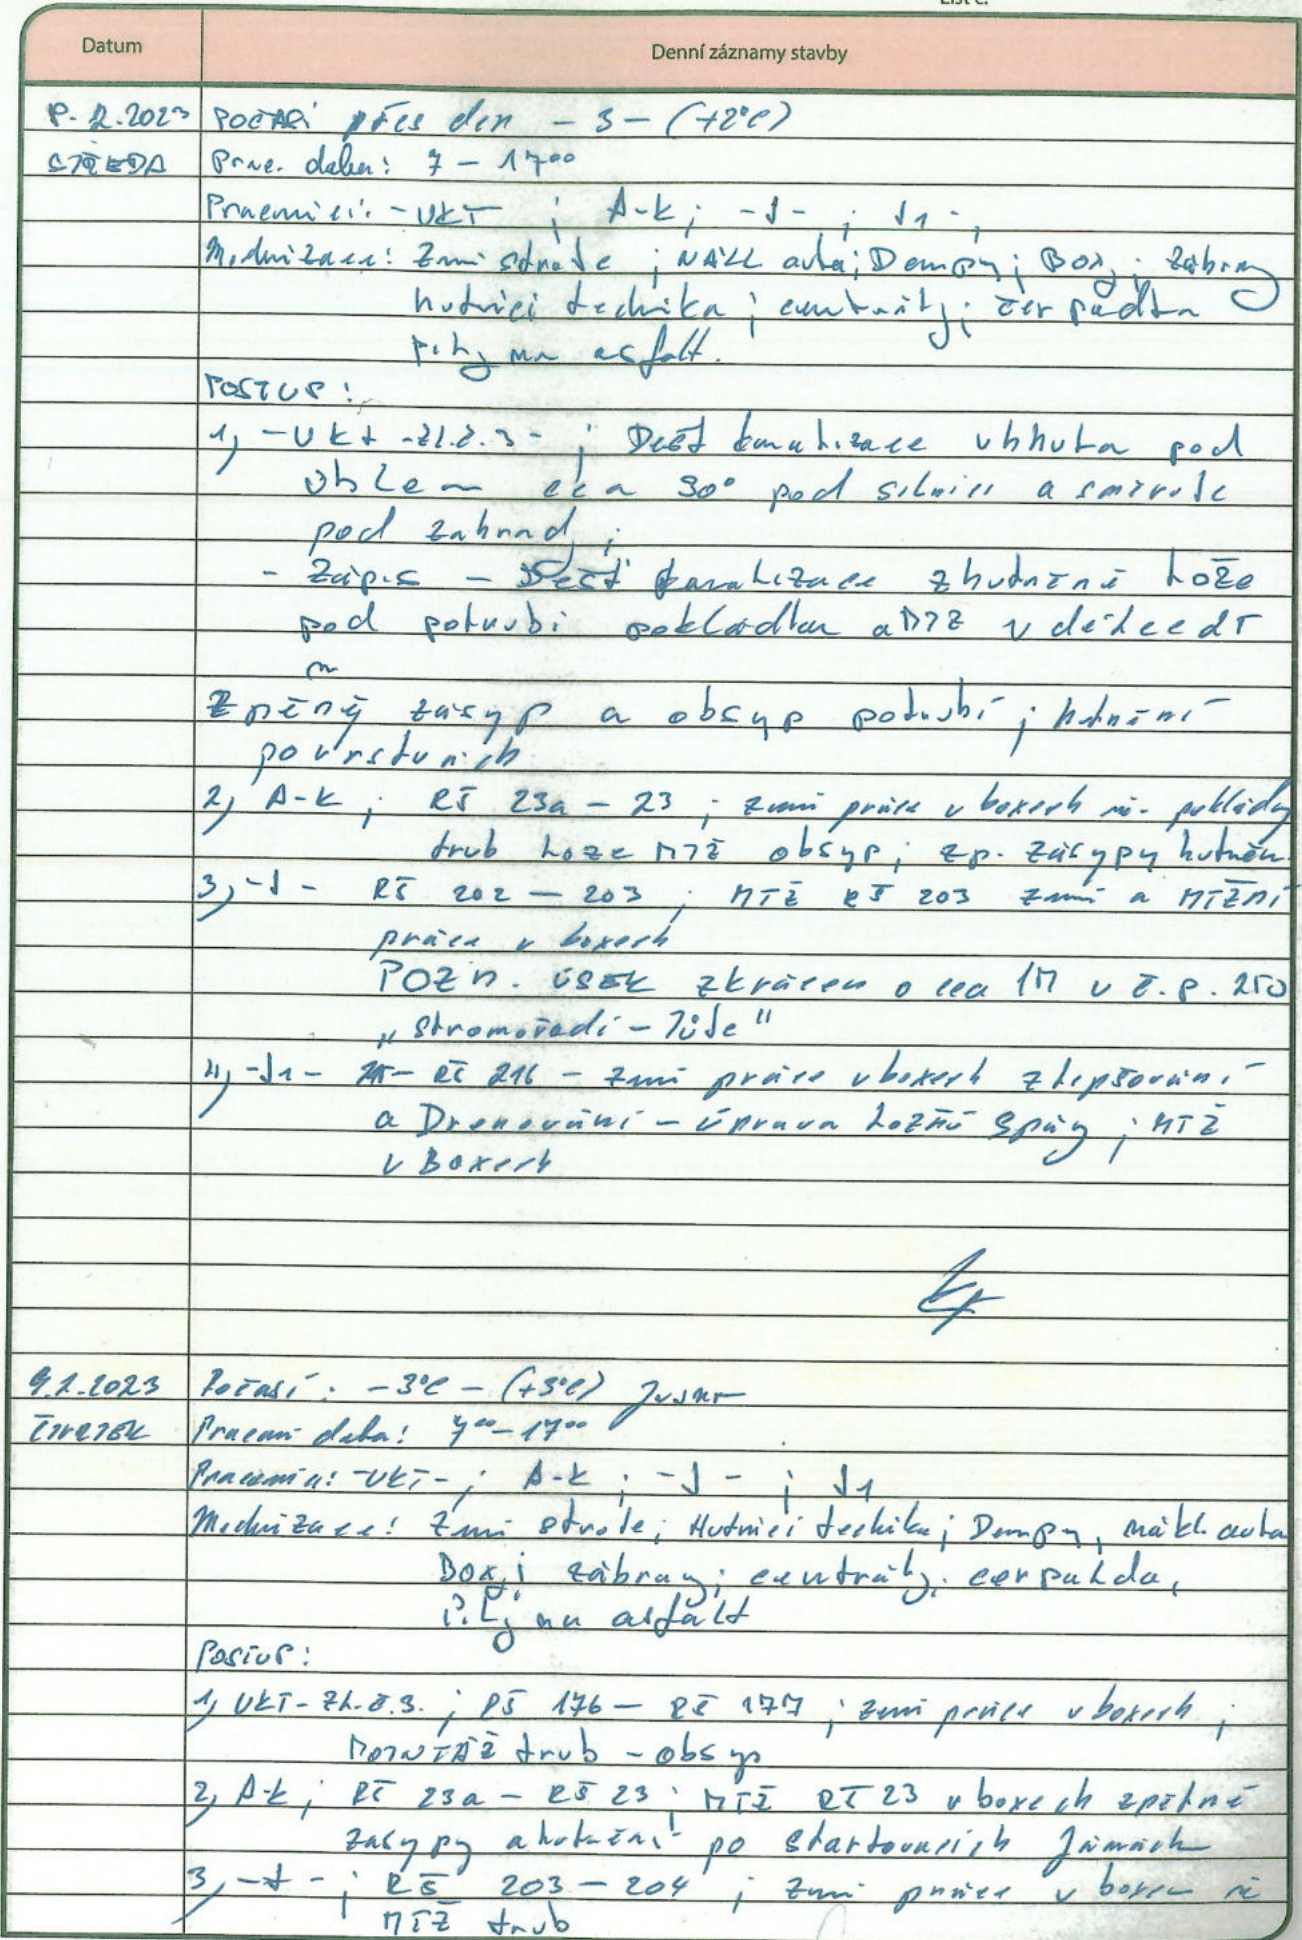 Datum
Denní záznamy stavby
8.2.2023 POČASÍ přes den - 3 - (+2°C)
STŘEDA Prac. doba: 7 - 17⁰⁰
Pracovníci: - UKT ; A-K ; - J - ; J1 - ;
Mechnizace: Zemní stroje ; NÁKL auta ; Dempry ; Boxy ; zábrany
hutnící technika ; centrály ; čerpadla
pily na asfalt.
POSTUP :
1, - UKT - Zl.č. 3 - ; Dešť kanalizace uhnuta pod
úhlem cca 30° pod silnici a směruje
pod zahrady ;
- Zápis - Dešť kanalizace zhutněné lože
pod potrubí pokládka a MTŽ v délce
Zpětný zásyp a obsyp potrubí ; hutnění
po vrstvách
2, A-K ; RŠ 23a - 23 ; zemní práce v boxech pokládky
trub lože MTŽ obsyp ; zp. zásypy hutněn.
3, - J - RŠ 202 - 203 ; MTŽ RŠ 203 zemní a MTŽNÍ
práce v boxech
POZN. ÚSEK zkrácen o cca 1M u č.p. 250
„stromořadí - Túje"
4, - J1 - RŠ 216 - zemní práce v boxech zlepšování
a Drenování - úprava ložné spáry ; MTŽ
v Boxech
9.2.2023 Počasí : -3°C - (+3°C) Jasno
ČTVRTEK Pracovní doba: 7⁰⁰ - 17⁰⁰
Pracovníci: - UKT - ; A-K ; - J - ; J1
Mechnizace: Zemní stroje ; Hutnící technika ; Dempry, nákl. auta
Boxy ; zábrany ; centrály ; čerpadla,
pily na asfalt
POSTUP :
1, UKT - Zl.č. 3. ; RŠ 176 - RŠ 177 ; zemní práce v boxech ;
MONTÁŽ trub - obsyp
2, A-K ; RŠ 23a - RŠ 23 ; MTŽ RŠ 23 v boxech zpětné
zásypy a hutnění po startovacích Jámách
3, - J - ; RŠ 203 - 204 ; zemní práce v boxech
MTŽ trub